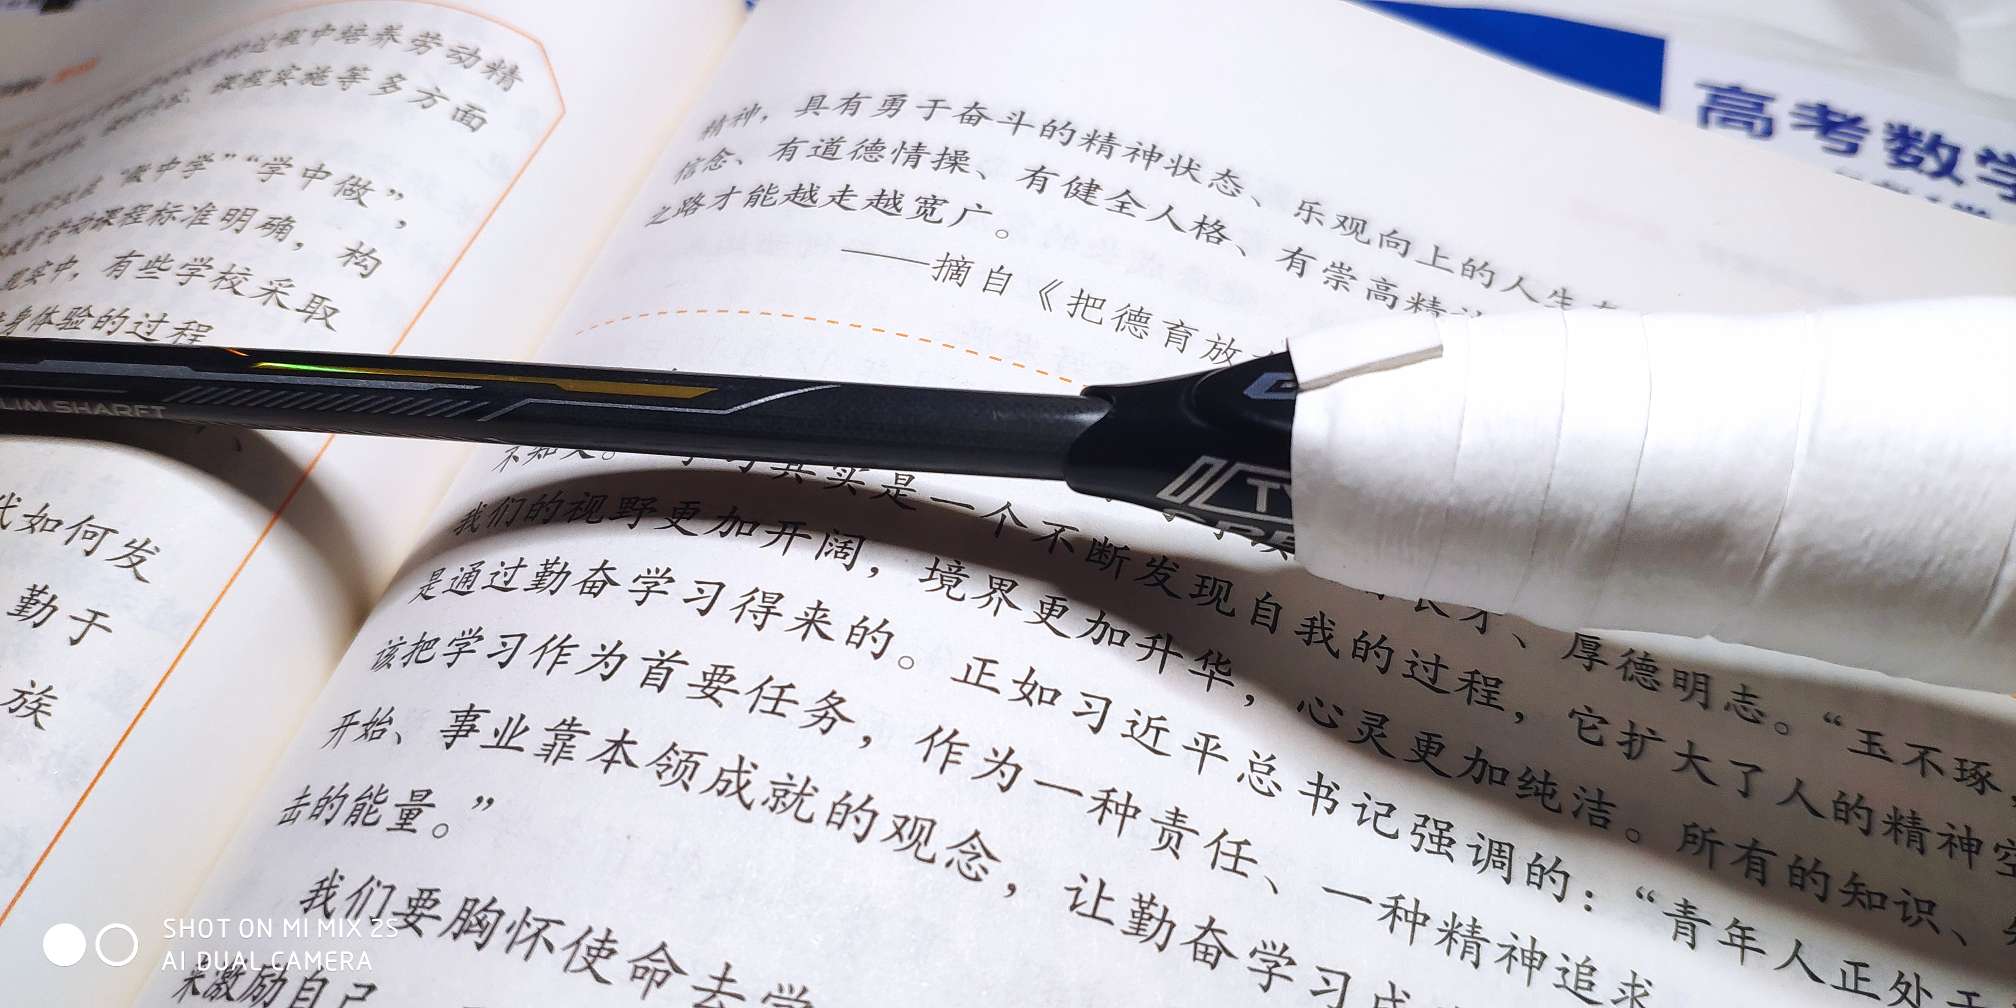 过程中培养劳动精
课程实施等多方面
“做中学”“学中做”，
劳动课程标准明确，构
现实中，有些学校采取
身体验的过程
代如何发
勤于
族
精神，具有勇于奋斗的精神状态、乐观向上的人生
信念、有道德情操、有健全人格、有崇高精
之路才能越走越宽广。
——摘自《把德育放
长才、厚德明志。“玉不琢
不知 是一个不断发现自我的过程，它扩大了人的精神空
我们的视野更加开阔，境界更加升华，心灵更加纯洁。所有的知识、
是通过勤奋学习得来的。正如习近平总书记强调的：“青年人正处于
该把学习作为首要任务，作为一种责任、一种精神追求
开始、事业靠本领成就的观念，让勤奋学习成
击的能量。”
我们要胸怀使命去学
来激励自己
高考数学
LIM SHARFT
TY
SHOT ON MI MIX 2S
AI DUAL CAMERA